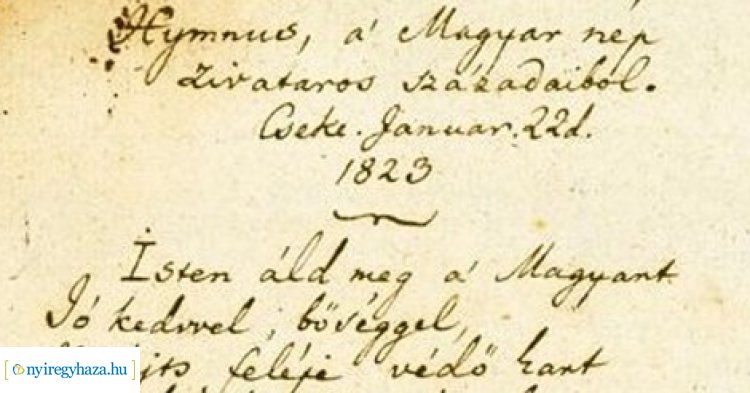 Hymnus, a' Magyar nép
zivataros századaiból.
Cseke. Januar. 22d.
1823
Isten áld meg a' Magyart
Jó kedvvel, bőséggel,
feléje védő kart
nyiregyhaza.hu